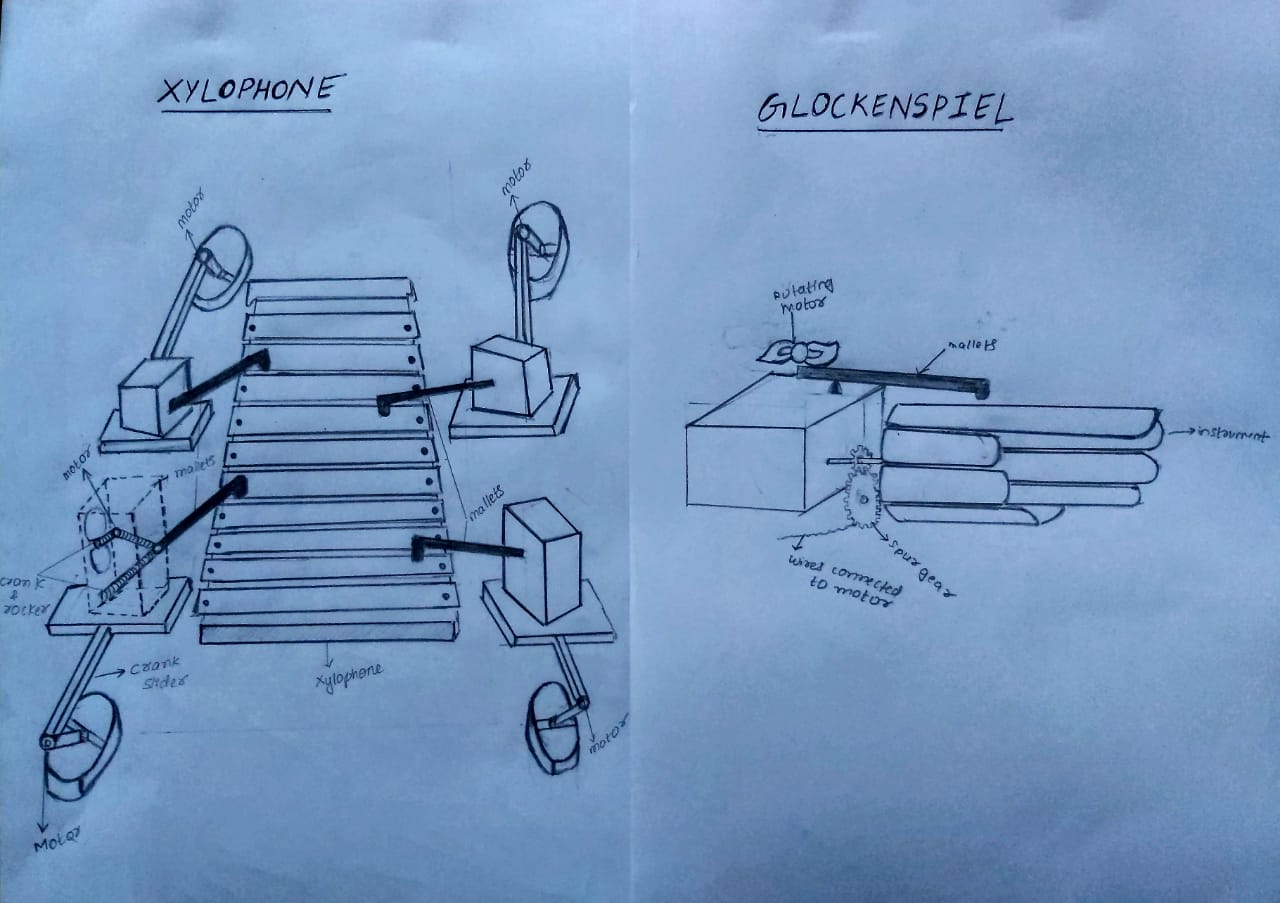 XYLOPHONE
motor
motor
motor
mallets
crank
&
rocker
mallets
crank
slider
xylophone
motor
Motor
GLOCKENSPIEL
rotating
motor
mallets
instrument
spur gear
wires connected
to motor